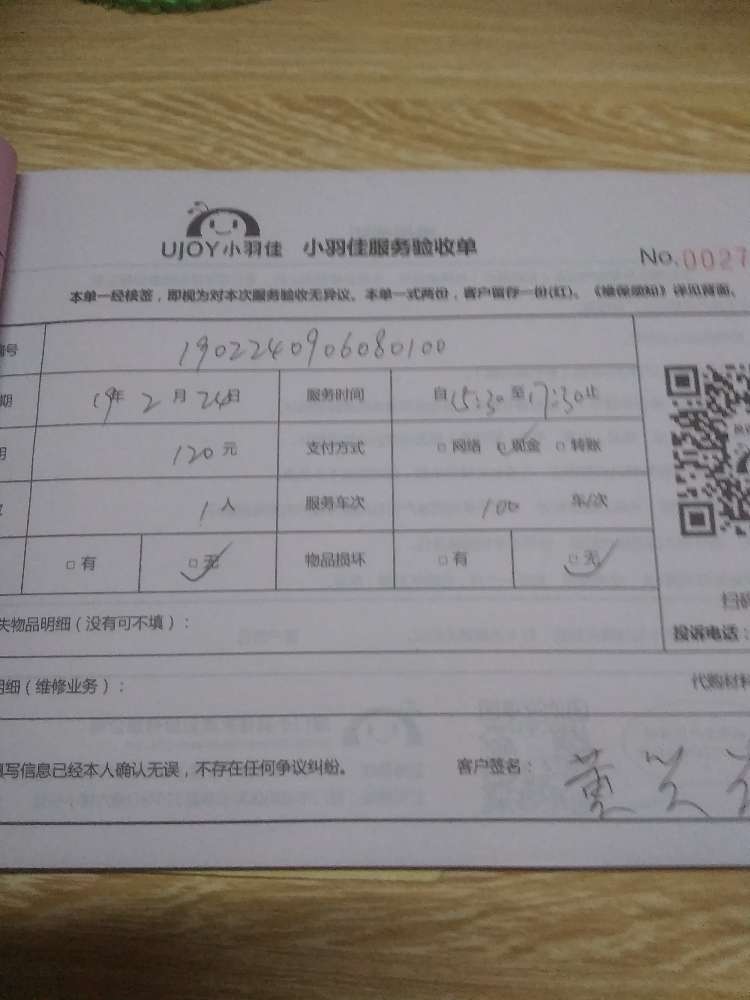 UJOY小羽佳 小羽佳服务验收单
No.0027
本单一经核签，即视为对本次服务验收无异议。本单一式两份，客户留存一份(红)。《维保须知》详见背面。
号 1902240906080100
期 19年 2月 24日 服务时间 自15:30至17:30止
120元 支付方式 □网络 □现金 □转账
1人 服务车次 100 车/次
□有 □无 物品损坏 □有 □无
扫码
失物品明细（没有可不填）：
投诉电话：
明细（维修业务）：
代购材料
填写信息已经本人确认无误，不存在任何争议纠纷。 客户签名：